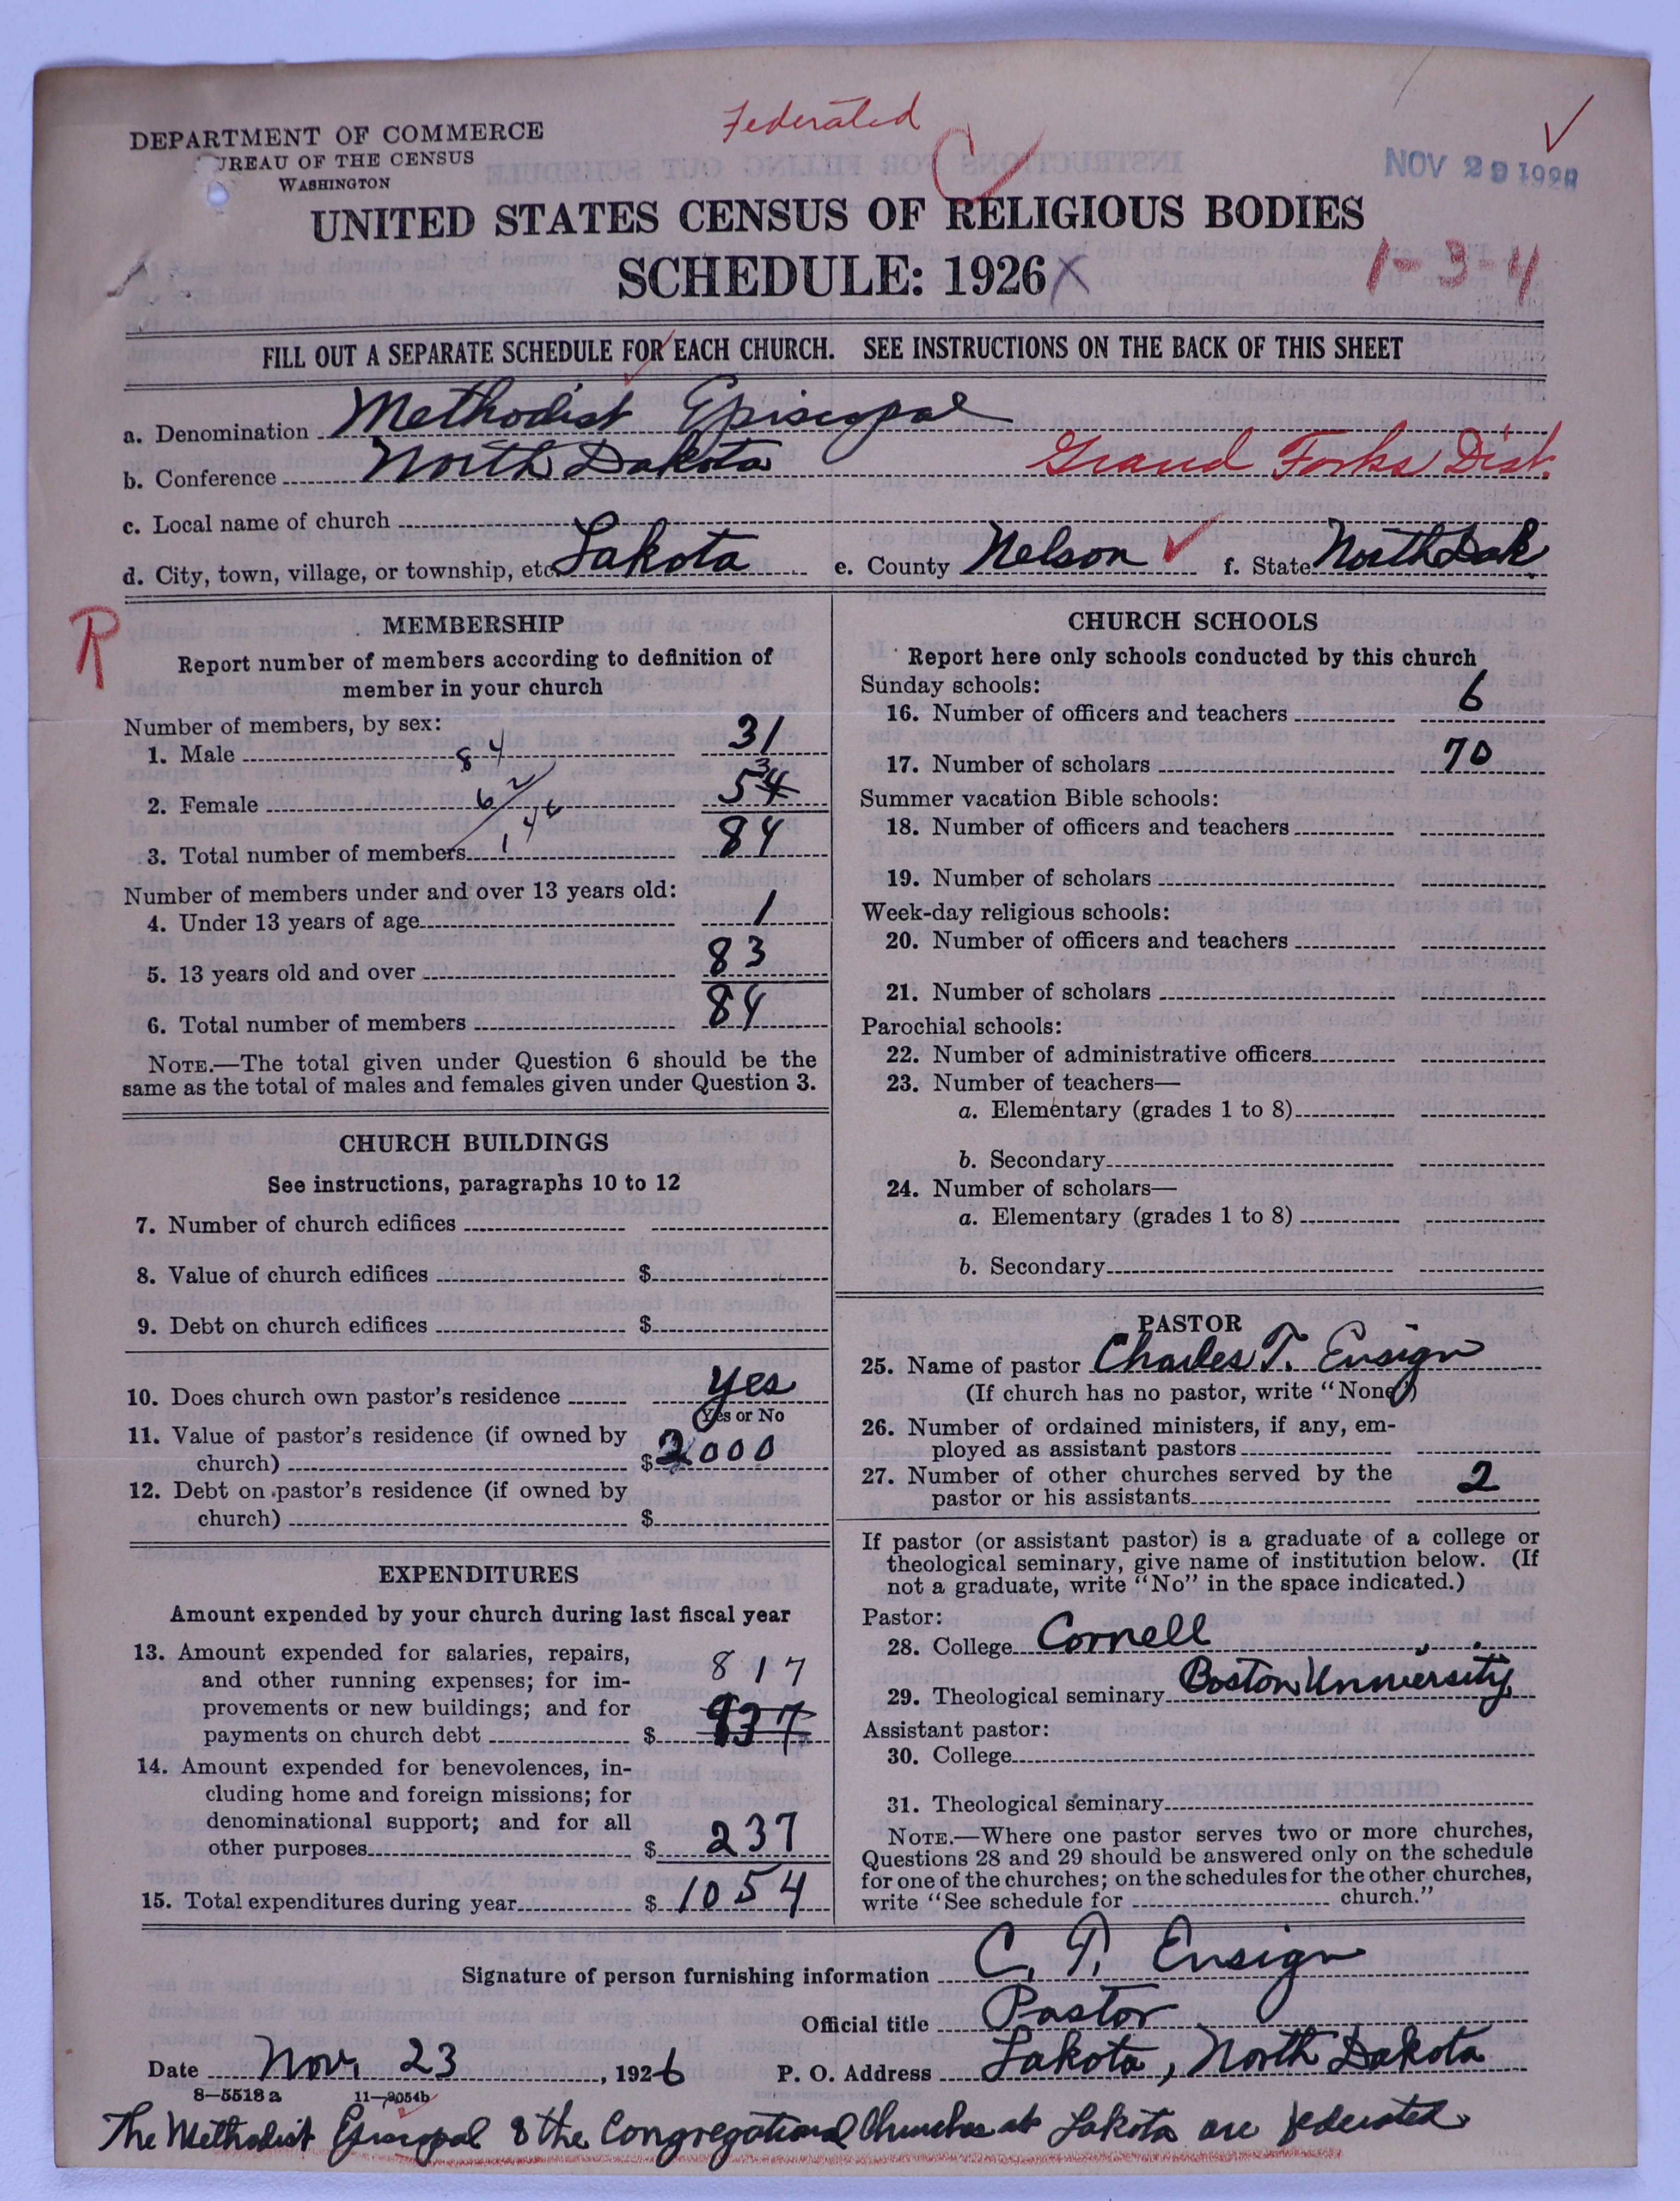 Federated
DEPARTMENT OF COMMERCE
BUREAU OF THE CENSUS
WASHINGTON
NOV 29 1926
UNITED STATES CENSUS OF RELIGIOUS BODIES
SCHEDULE: 1926
1-3-4
FILL OUT A SEPARATE SCHEDULE FOR EACH CHURCH. SEE INSTRUCTIONS ON THE BACK OF THIS SHEET
a. Denomination Methodist Episcopal
b. Conference North Dakota Grand Forks Dist.
c. Local name of church
d. City, town, village, or township, etc. Lakota e. County Nelson f. State North Dak
R
MEMBERSHIP
Report number of members according to definition of
member in your church
Number of members, by sex:
1. Male 31
84
2. Female 534
62
146
3. Total number of members 84
Number of members under and over 13 years old:
4. Under 13 years of age 1
5. 13 years old and over 83
6. Total number of members 84
NOTE.—The total given under Question 6 should be the
same as the total of males and females given under Question 3.
CHURCH BUILDINGS
See instructions, paragraphs 10 to 12
7. Number of church edifices
8. Value of church edifices $
9. Debt on church edifices $
10. Does church own pastor's residence Yes
(Yes or No
11. Value of pastor's residence (if owned by
church) $ 2000
12. Debt on pastor's residence (if owned by
church) $
EXPENDITURES
Amount expended by your church during last fiscal year
13. Amount expended for salaries, repairs,
and other running expenses; for im- 817
provements or new buildings; and for
payments on church debt $ 937
14. Amount expended for benevolences, in-
cluding home and foreign missions; for
denominational support; and for all
other purposes $ 237
15. Total expenditures during year $ 1054
CHURCH SCHOOLS
Report here only schools conducted by this church
Sunday schools:
16. Number of officers and teachers 6
17. Number of scholars 70
Summer vacation Bible schools:
18. Number of officers and teachers
19. Number of scholars
Week-day religious schools:
20. Number of officers and teachers
21. Number of scholars
Parochial schools:
22. Number of administrative officers
23. Number of teachers—
a. Elementary (grades 1 to 8)
b. Secondary
24. Number of scholars—
a. Elementary (grades 1 to 8)
b. Secondary
PASTOR
25. Name of pastor Charles T. Ensign
(If church has no pastor, write "None")
26. Number of ordained ministers, if any, em-
ployed as assistant pastors
27. Number of other churches served by the
pastor or his assistants 2
If pastor (or assistant pastor) is a graduate of a college or
theological seminary, give name of institution below. (If
not a graduate, write "No" in the space indicated.)
Pastor:
28. College Cornell
29. Theological seminary Boston University
Assistant pastor:
30. College
31. Theological seminary
NOTE.—Where one pastor serves two or more churches,
Questions 28 and 29 should be answered only on the schedule
for one of the churches; on the schedules for the other churches,
write "See schedule for church."
Signature of person furnishing information C. T. Ensign
Official title Pastor
Date Nov. 23, 1926 P. O. Address Lakota, North Dakota
8—5518a 11—9054b
The Methodist Episcopal & the Congregational Churches at Lakota are federated